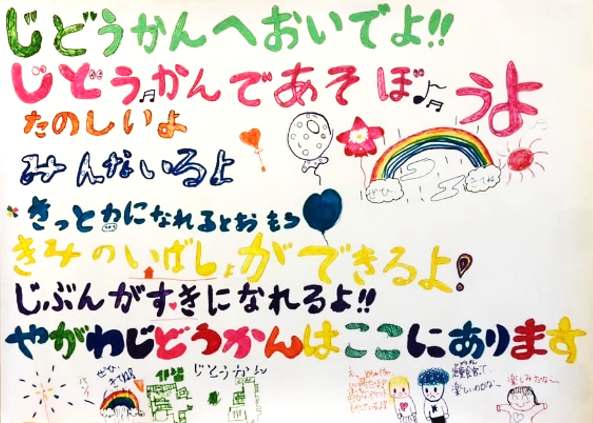 じどうかんへおいでよ!!
じどうかんであそぼうよ
たのしいよ
みんないるよ
きっと力になれるとおもう
きみのいばしょができるよ!
じぶんがすきになれるよ!!
やがわじどうかんはここにあります
ぜひ
きてね
じどうかん
楽しみだな〜